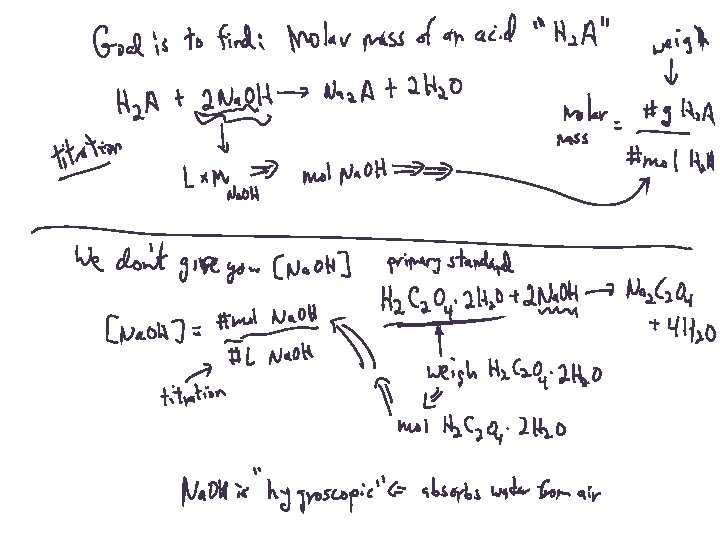 Goal is to find: Molar mass of an acid "H₂A"
weigh
H₂A + 2NaOH → Na₂A + 2H₂O
molar mass = #g H₂A / #mol H₂A
titration
L × M NaOH ⇒ mol NaOH ⇒⇒
We don't give you [NaOH]
primary standard
H₂C₂O₄·2H₂O + 2NaOH → Na₂C₂O₄ + 4H₂O
[NaOH] = #mol NaOH / #L NaOH
titration
weigh H₂C₂O₄·2H₂O
mol H₂C₂O₄·2H₂O
NaOH is "hygroscopic" ⇐ absorbs water from air